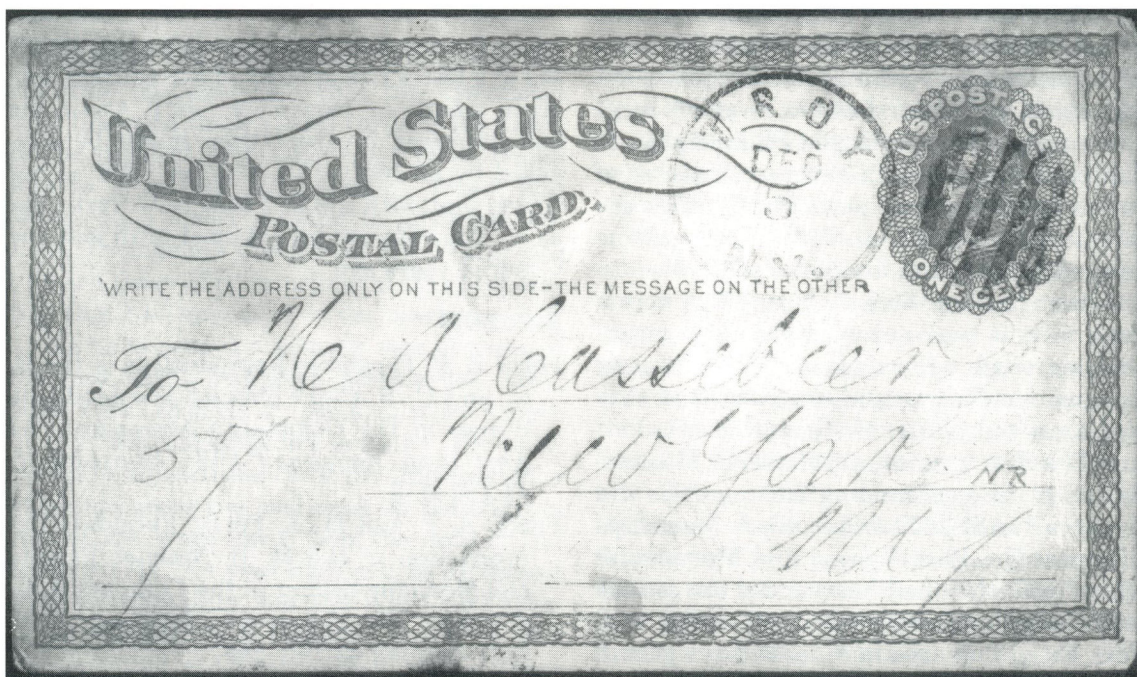 United States
POSTAL CARD.
TROY
DEC
U.S. POSTAGE
ONE CENT
WRITE THE ADDRESS ONLY ON THIS SIDE-THE MESSAGE ON THE OTHER
To H A Cassebeer
57 New York NR
NY